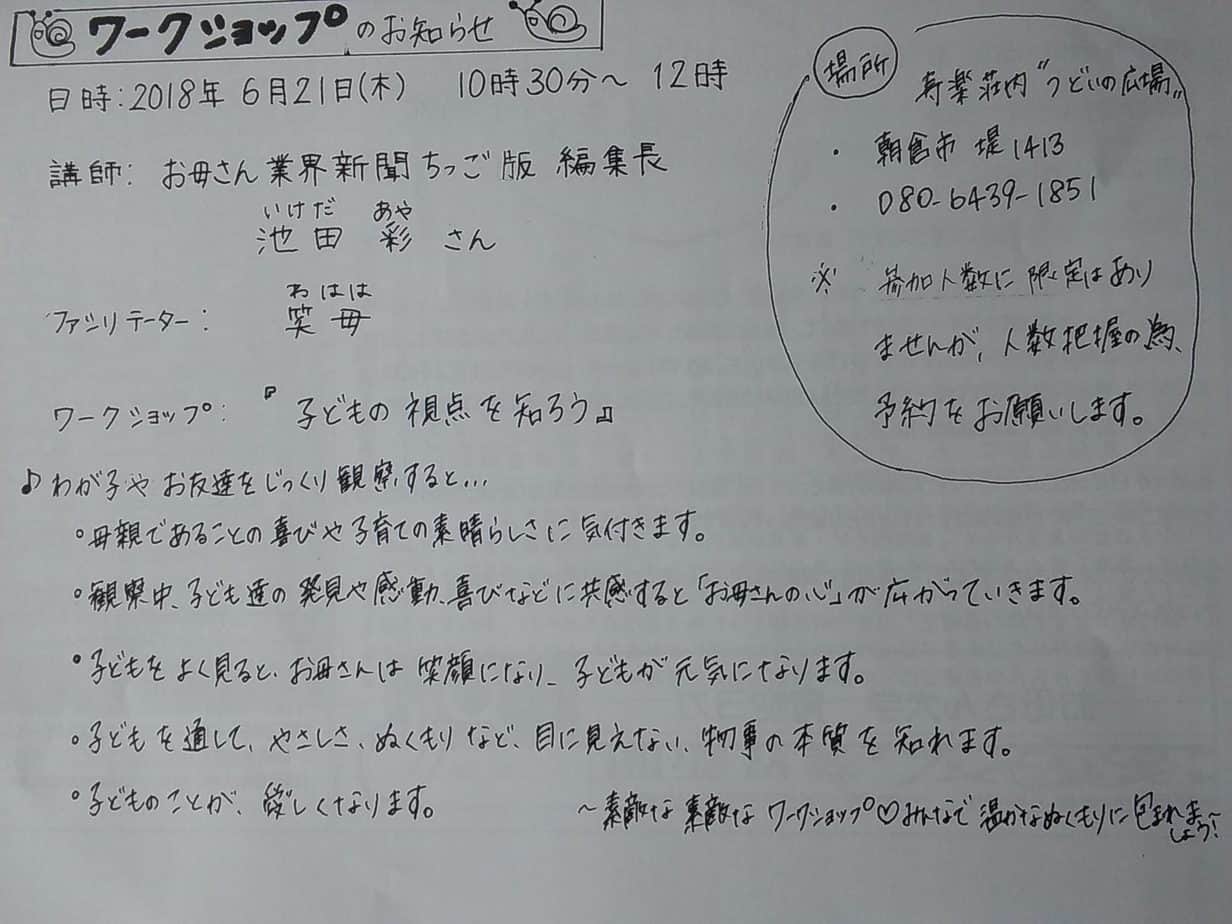 ワークショップのお知らせ
日時:2018年 6月21日(木) 10時30分～ 12時
講師: お母さん業界新聞ちっご版 編集長
いけだ あや
池田 彩 さん
わはは
ファシリテーター: 笑母
ワークショップ: 『子どもの視点を知ろう』
場所
寿楽荘内 "つどいの広場"
・ 朝倉市 堤1413
・ 080-6439-1851
※ 参加人数に限定はあり
ませんが、人数把握の為、
予約をお願いします。
♪わが子や お友達をじっくり観察すると…
○母親であることの喜びや子育ての素晴らしさに気付きます。
○観察中、子ども達の発見や感動、喜びなどに共感すると「お母さんの心」が広がっていきます。
○子どもをよく見ると、お母さんは笑顔になり、子どもが元気になります。
○子どもを通して、やさしさ、ぬくもりなど、目に見えない、物事の本質を知れます。
○子どものことが、愛しくなります。
～素敵な素敵なワークショップ♡みんなで温かなぬくもりに包まれましょう！